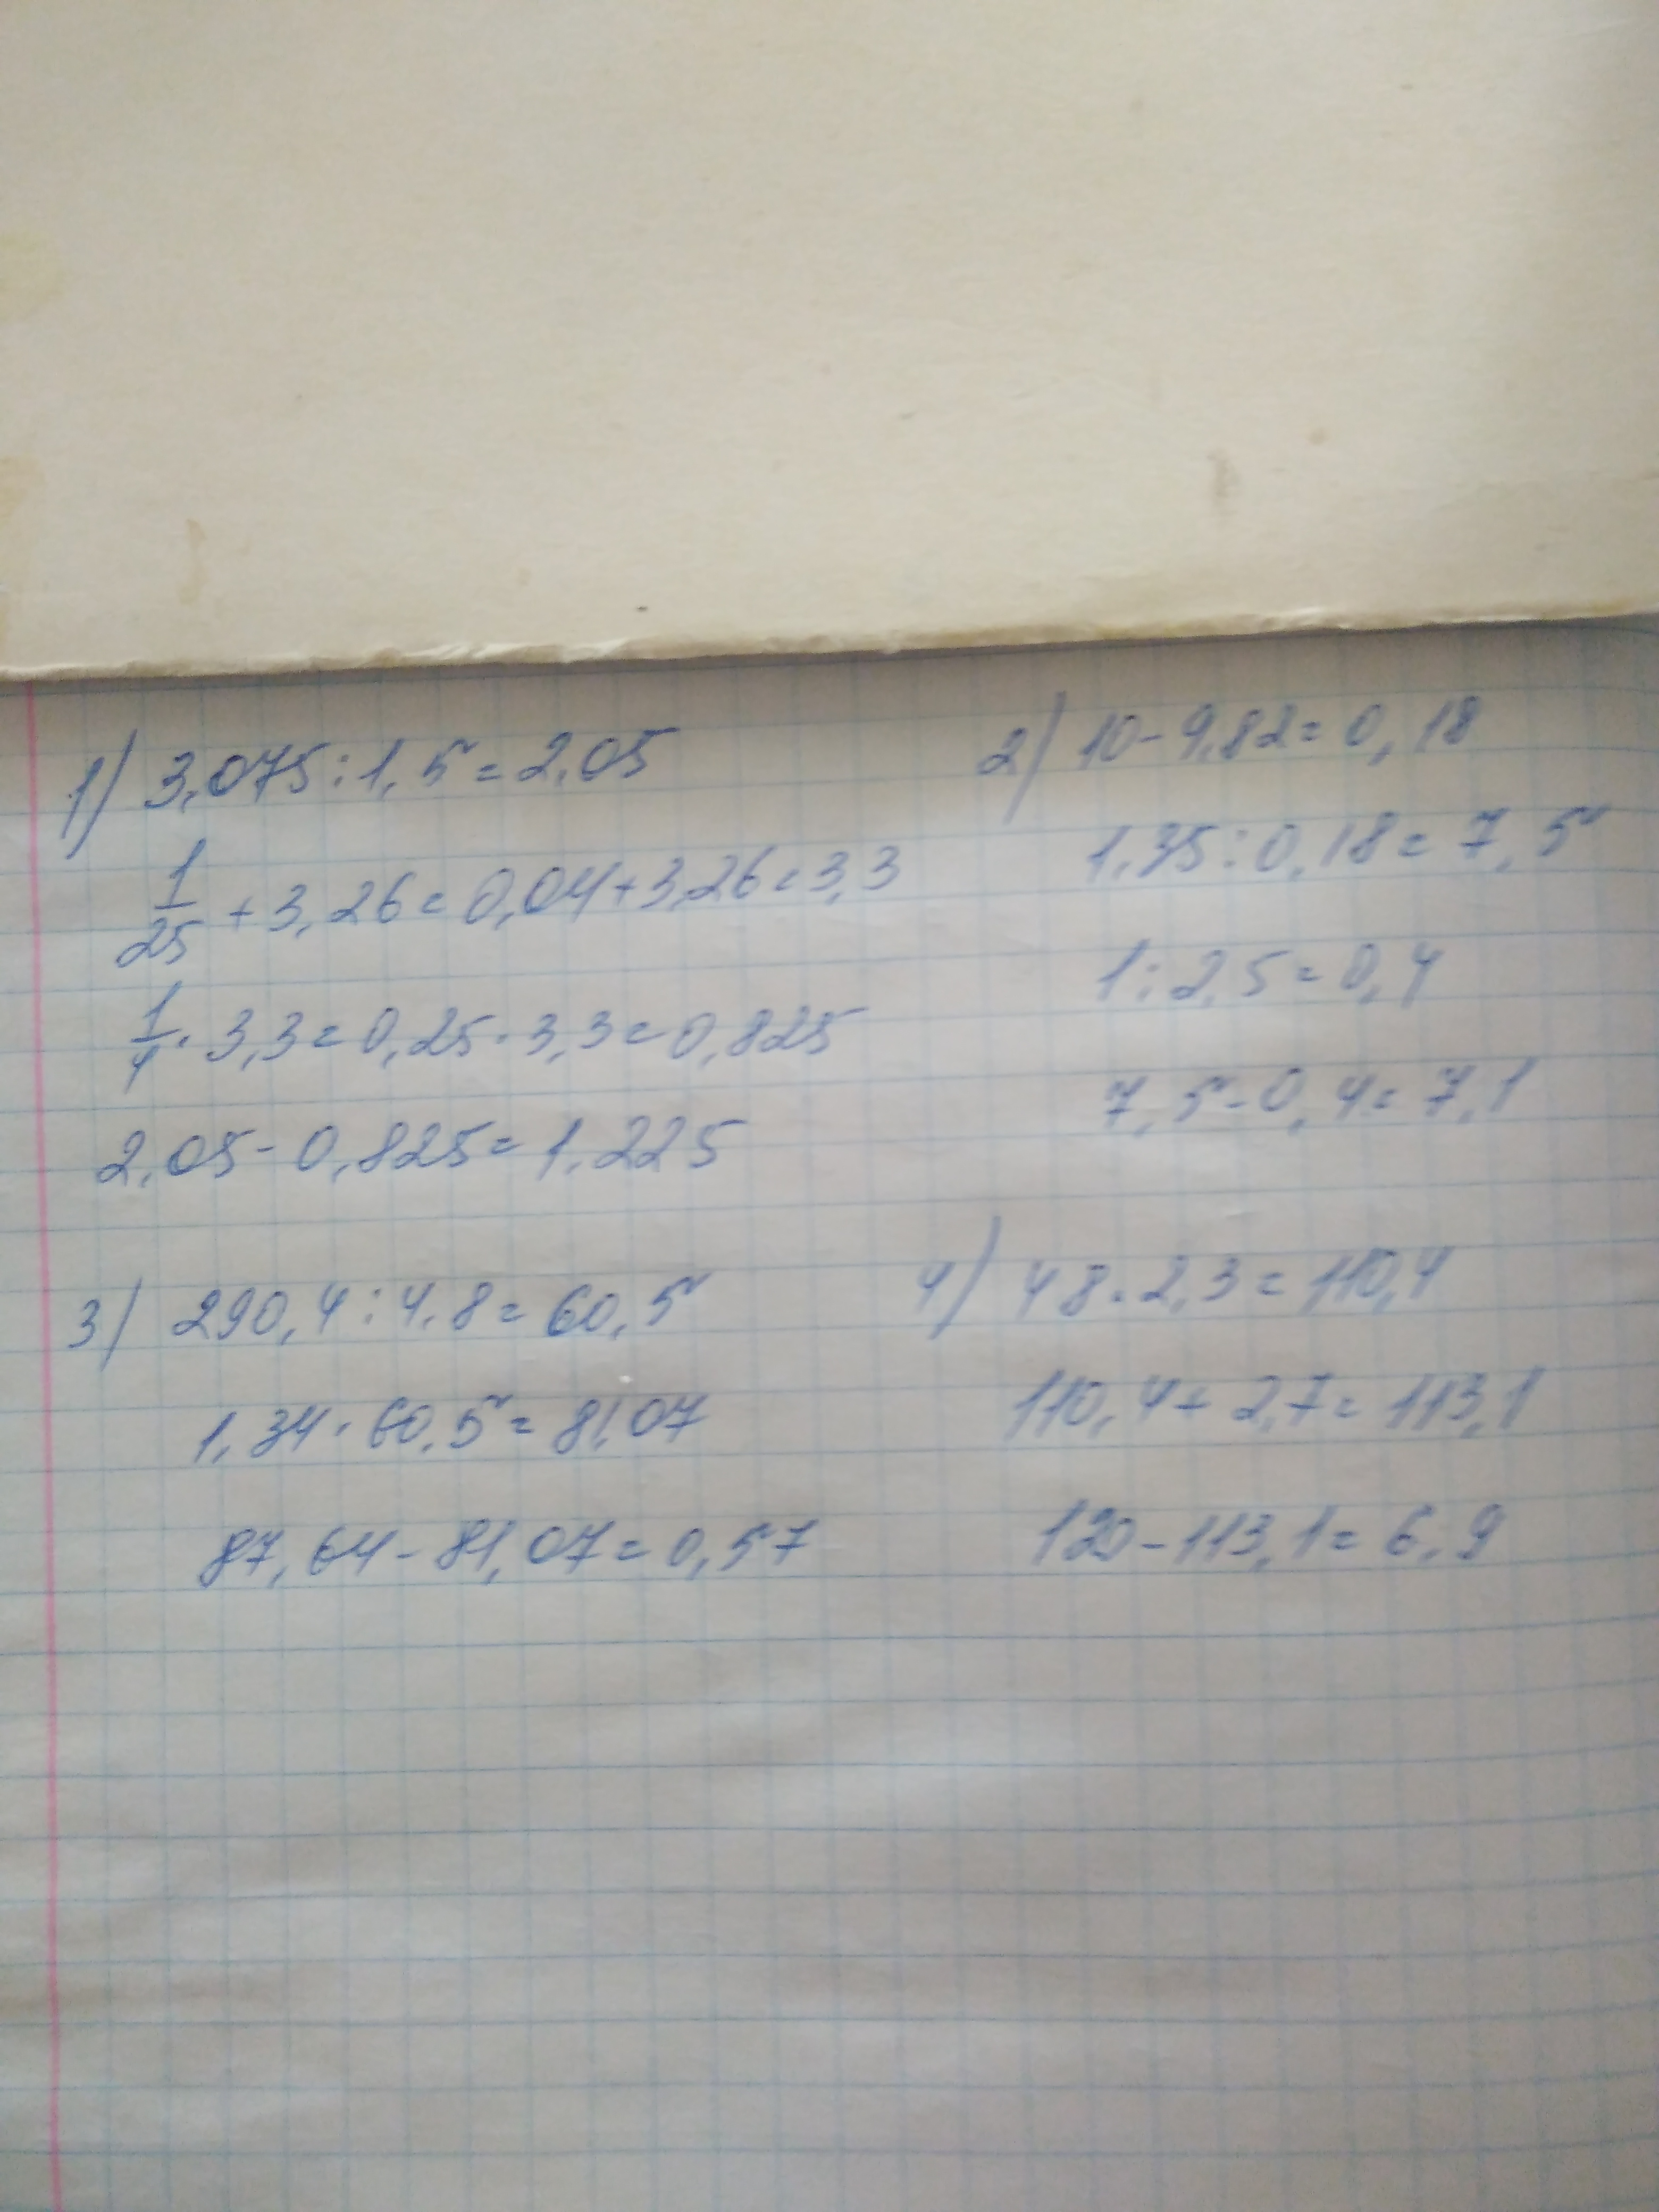 1) 3,075 : 1,5 = 2,05
1/25 + 3,26 = 0,04 + 3,26 = 3,3
1/4 · 3,3 = 0,25 · 3,3 = 0,825
2,05 - 0,825 = 1,225
2) 10 - 9,82 = 0,18
1,35 : 0,18 = 7,5
1 : 2,5 = 0,4
7,5 - 0,4 = 7,1
3) 290,4 : 4,8 = 60,5
1,34 · 60,5 = 81,07
87,64 - 81,07 = 0,57
4) 48 · 2,3 = 110,4
110,4 + 2,7 = 113,1
120 - 113,1 = 6,9